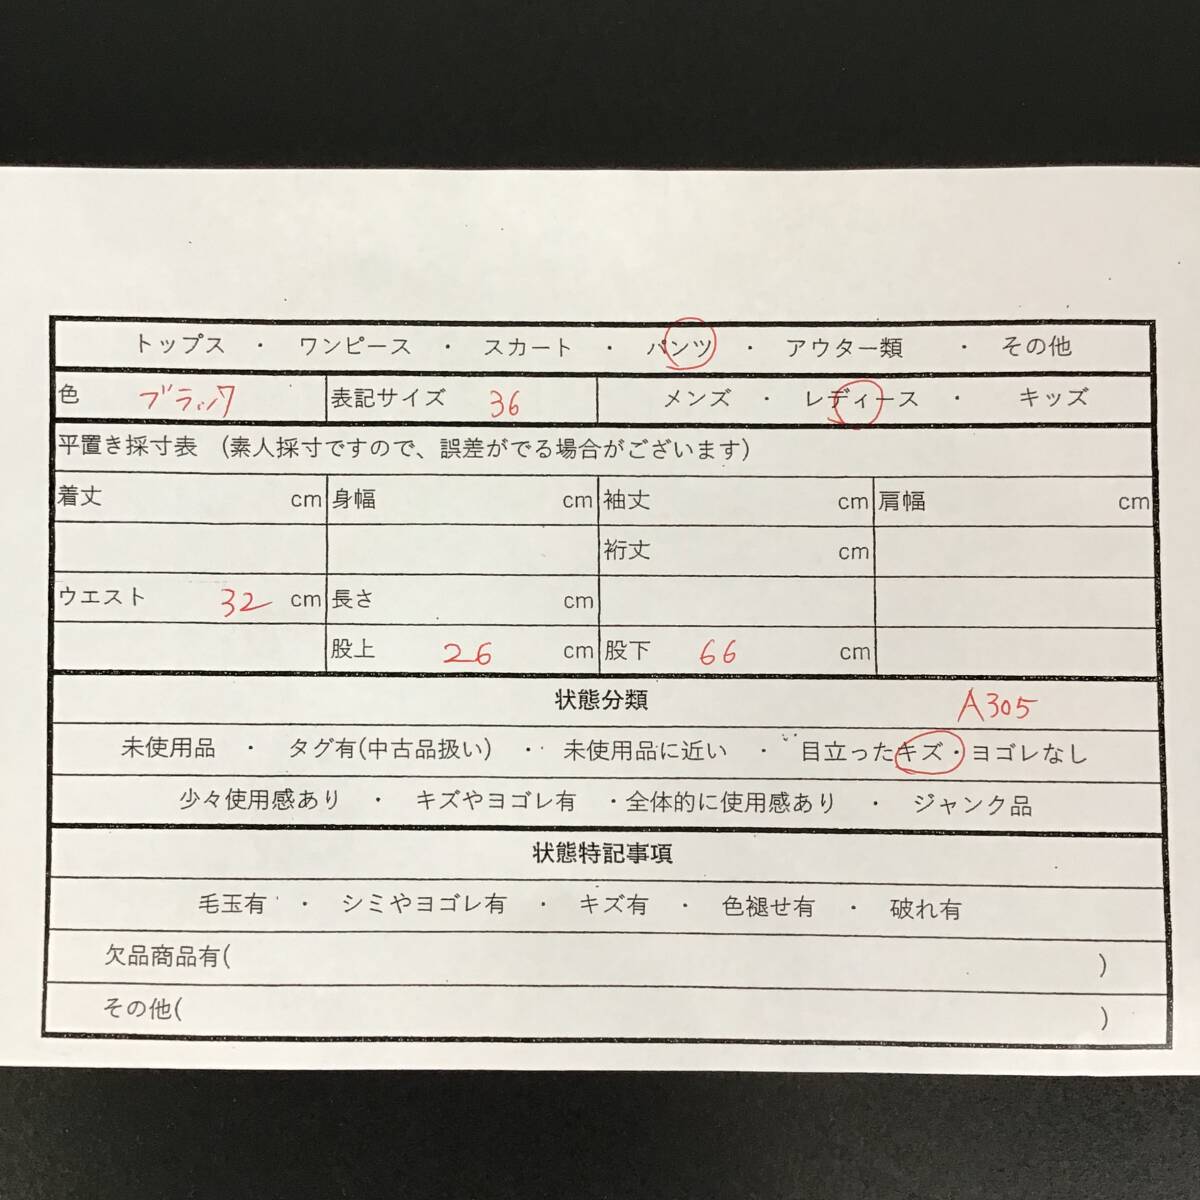 トップス ・ ワンピース ・ スカート ・ パンツ ・ アウター類 ・ その他
色 ブラック 表記サイズ 36 メンズ ・ レディース ・ キッズ
平置き採寸表 (素人採寸ですので、誤差がでる場合がございます)
着丈 cm 身幅 cm 袖丈 cm 肩幅 cm
裄丈 cm
ウエスト 32 cm 長さ cm
股上 26 cm 股下 66 cm
状態分類 A305
未使用品 ・ タグ有(中古品扱い) ・ 未使用品に近い ・ 目立ったキズ・ヨゴレなし
少々使用感あり ・ キズやヨゴレ有 ・全体的に使用感あり ・ ジャンク品
状態特記事項
毛玉有 ・ シミやヨゴレ有 ・ キズ有 ・ 色褪せ有 ・ 破れ有
欠品商品有( )
その他( )